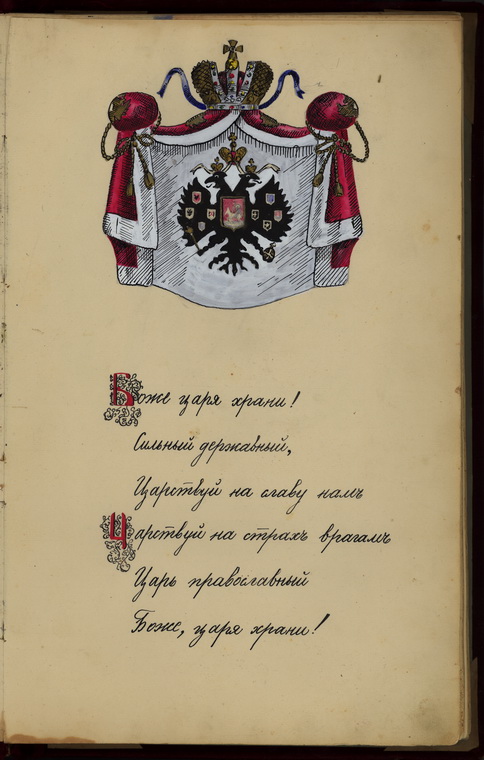 Боже царя храни!
Сильный державный,
Царствуй на славу намъ
Царствуй на страхъ врагамъ
Царь православный
Боже, царя храни!